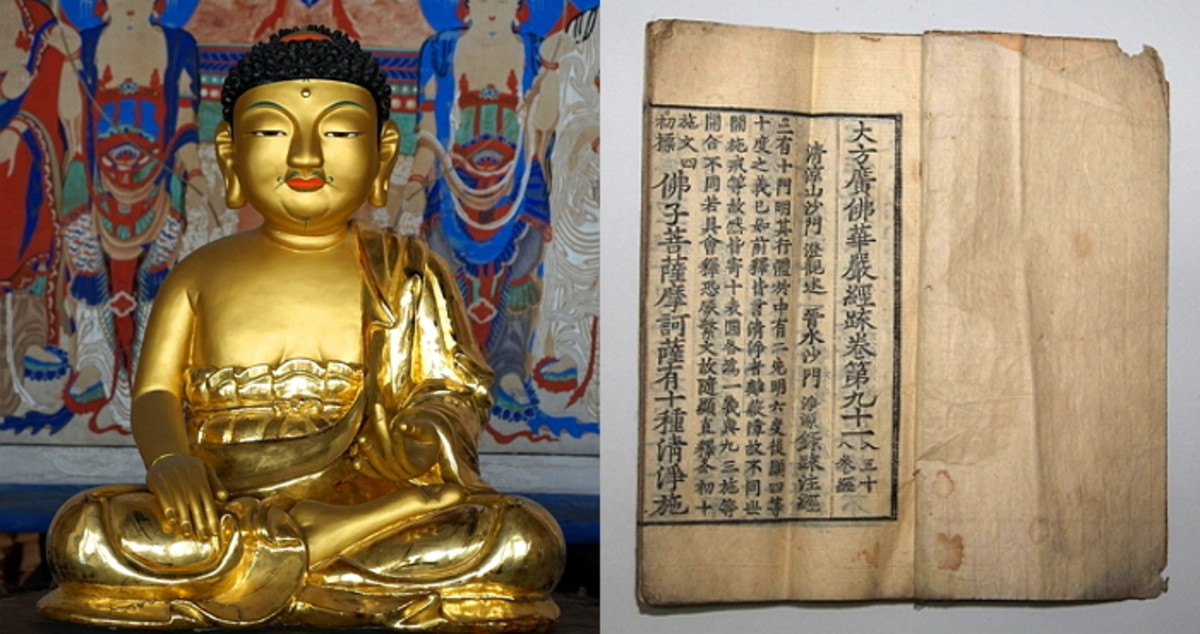 大方廣佛華嚴經疏卷第九十一
清凉山沙門 澄觀述 晉水沙門 淨源錄疏注經
三有十門明其行體於中有二先明六度後顯四等
十度之義已如前釋皆言清淨者離蔽障故不同世
間施戒等故然皆寄十表圓各爲一義與九三施等
開合不同若具會釋恐厭繁文故隨顯直釋今初十
施文四
初標
佛子菩薩摩訶薩有十種清淨施